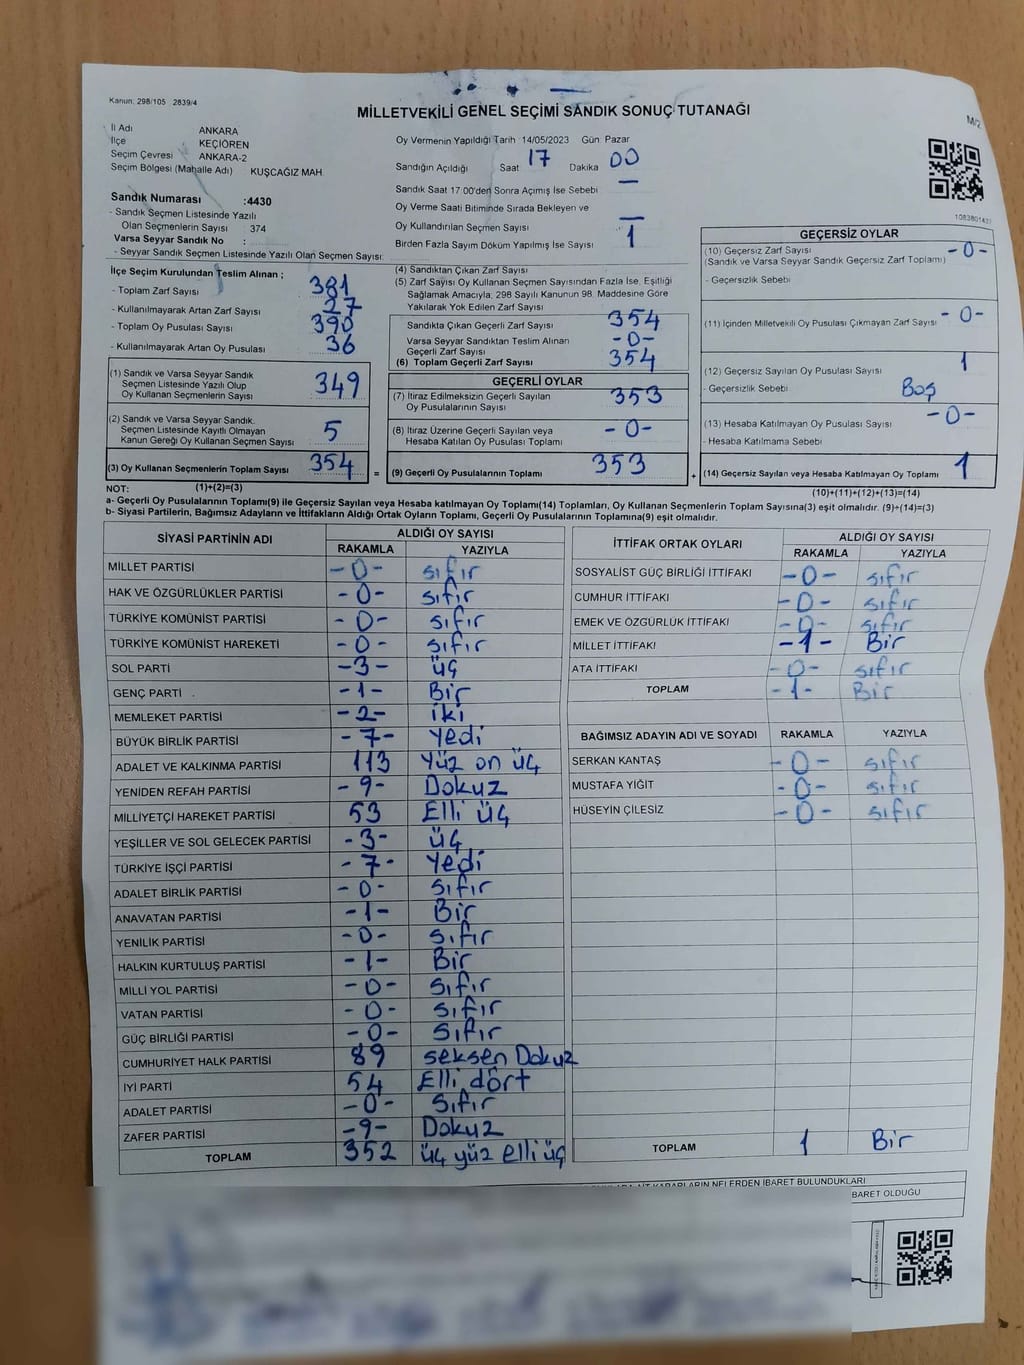 Kanun. 298/105 2839/4
MİLLETVEKİLİ GENEL SEÇİMİ SANDIK SONUÇ TUTANAĞI
M/2
İl Adı ANKARA
İlçe KEÇİÖREN
Seçim Çevresi ANKARA-2
Seçim Bölgesi (Mahalle Adı) KUŞCAĞIZ MAH.
Sandık Numarası :4430
- Sandık Seçmen Listesinde Yazılı
Olan Seçmenlerin Sayısı 374
Varsa Seyyar Sandık No :
- Seyyar Sandık Seçmen Listesinde Yazılı Olan Seçmen Sayısı:
Oy Vermenin Yapıldığı Tarih 14/05/2023 Gün Pazar
Sandığın Açıldığı Saat 17 Dakika 00
Sandık Saat 17:00'den Sonra Açımış İse Sebebi —
Oy Verme Saati Bitiminde Sırada Bekleyen ve
Oy Kullandırılan Seçmen Sayısı —
Birden Fazla Sayım Döküm Yapılmış İse Sayısı 1
İlçe Seçim Kurulundan Teslim Alınan ;
- Toplam Zarf Sayısı 381
- Kullanılmayarak Artan Zarf Sayısı 27
- Toplam Oy Pusulası Sayısı 390
- Kullanılmayarak Artan Oy Pusulası 36
(1) Sandık ve Varsa Seyyar Sandık
Seçmen Listesinde Yazılı Olup
Oy Kullanan Seçmenlerin Sayısı 349
(2) Sandık ve Varsa Seyyar Sandık.
Seçmen Listesinde Kayıtlı Olmayan
Kanun Gereği Oy Kullanan Seçmen Sayısı 5
(3) Oy Kullanan Seçmenlerin Toplam Sayısı 354 =
(4) Sandıktan Çıkan Zarf Sayısı
(5) Zarf Sayısı Oy Kullanan Seçmen Sayısından Fazla İse, Eşitliği
Sağlamak Amacıyla, 298 Sayılı Kanunun 98. Maddesine Göre
Yakılarak Yok Edilen Zarf Sayısı
Sandıkta Çıkan Geçerli Zarf Sayısı 354
Varsa Seyyar Sandıktan Teslim Alınan
Geçerli Zarf Sayısı -0-
(6) Toplam Geçerli Zarf Sayısı 354
GEÇERLİ OYLAR
(7) İtiraz Edilmeksizin Geçerli Sayılan
Oy Pusulalarının Sayısı 353
(8) İtiraz Üzerine Geçerli Sayılan veya
Hesaba Katılan Oy Pusulası Toplamı -0-
(9) Geçerli Oy Pusulalarının Toplamı 353 +
GEÇERSİZ OYLAR
(10) Geçersiz Zarf Sayısı -0-
(Sandık ve Varsa Seyyar Sandık Geçersiz Zarf Toplamı)
- Geçersizlik Sebebi
(11) İçinden Milletvekili Oy Pusulası Çıkmayan Zarf Sayısı -0-
(12) Geçersiz Sayılan Oy Pusulası Sayısı 1
- Geçersizlik Sebebi Boş
(13) Hesaba Katılmayan Oy Pusulası Sayısı -0-
- Hesaba Katılmama Sebebi
(14) Geçersiz Sayılan veya Hesaba Katılmayan Oy Toplamı 1
NOT: (1)+(2)=(3) (10)+(11)+(12)+(13)=(14)
a- Geçerli Oy Pusulalarının Toplamı(9) ile Geçersiz Sayılan veya Hesaba katılmayan Oy Toplamı(14) Toplamları, Oy Kullanan Seçmenlerin Toplam Sayısına(3) eşit olmalıdır. (9)+(14)=(3)
b- Siyasi Partilerin, Bağımsız Adayların ve İttifakların Aldığı Ortak Oyların Toplamı, Geçerli Oy Pusulalarının Toplamına(9) eşit olmalıdır.
SİYASİ PARTİNİN ADI ALDIĞI OY SAYISI
RAKAMLA YAZIYLA
MİLLET PARTİSİ -0- sıfır
HAK VE ÖZGÜRLÜKLER PARTİSİ -0- sıfır
TÜRKİYE KOMÜNİST PARTİSİ -0- sıfır
TÜRKİYE KOMÜNİST HAREKETİ -0- sıfır
SOL PARTİ -3- üç
GENÇ PARTİ -1- Bir
MEMLEKET PARTİSİ -2- iki
BÜYÜK BİRLİK PARTİSİ -7- Yedi
ADALET VE KALKINMA PARTİSİ 113 Yüz on üç
YENİDEN REFAH PARTİSİ -9- Dokuz
MİLLİYETÇİ HAREKET PARTİSİ 53 Elli üç
YEŞİLLER VE SOL GELECEK PARTİSİ -3- üç
TÜRKİYE İŞÇİ PARTİSİ -7- Yedi
ADALET BİRLİK PARTİSİ -0- sıfır
ANAVATAN PARTİSİ -1- Bir
YENİLİK PARTİSİ -0- sıfır
HALKIN KURTULUŞ PARTİSİ -1- Bir
MİLLİ YOL PARTİSİ -0- sıfır
VATAN PARTİSİ -0- sıfır
GÜÇ BİRLİĞİ PARTİSİ -0- sıfır
CUMHURİYET HALK PARTİSİ 89 seksen Dokuz
İYİ PARTİ 54 Elli dört
ADALET PARTİSİ -0- sıfır
ZAFER PARTİSİ -9- Dokuz
TOPLAM 352 üç yüz elli üç
İTTİFAK ORTAK OYLARI ALDIĞI OY SAYISI
RAKAMLA YAZIYLA
SOSYALİST GÜÇ BİRLİĞİ İTTİFAKI -0- sıfır
CUMHUR İTTİFAKI -0- sıfır
EMEK VE ÖZGÜRLÜK İTTİFAKI -0- sıfır
MİLLET İTTİFAKI -1- Bir
ATA İTTİFAKI -0- sıfır
TOPLAM -1- Bir
BAĞIMSIZ ADAYIN ADI VE SOYADI RAKAMLA YAZIYLA
SERKAN KANTAŞ -0- sıfır
MUSTAFA YİĞİT -0- sıfır
HÜSEYİN ÇİLESİZ -0- sıfır
TOPLAM 1 Bir
NELERDEN İBARET BULUNDUKLARI
İBARET OLDUĞU